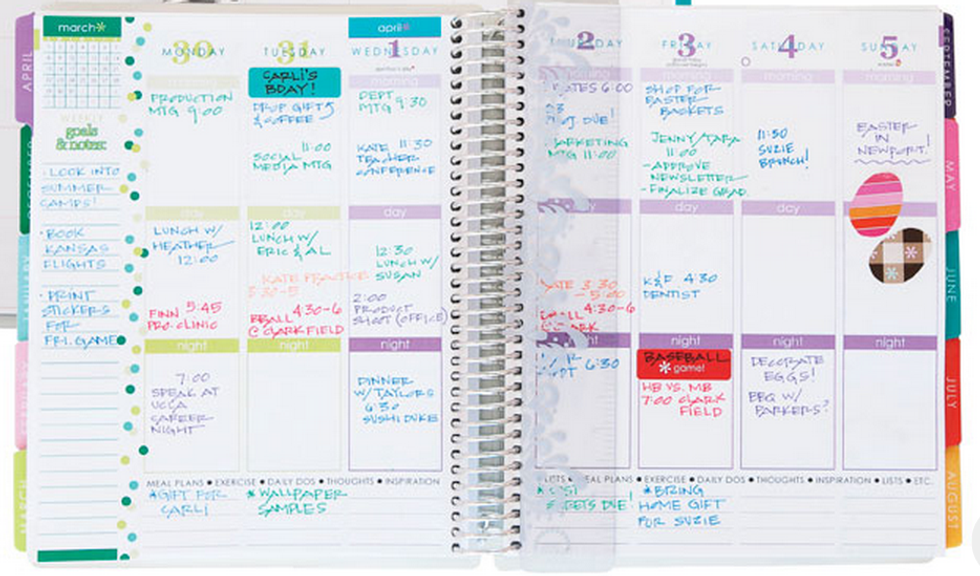 march*
april*
APRIL
WEEKLY
goals
& notes:
· LOOK INTO
SUMMER
CAMPS!
· BOOK
KANSAS
FLIGHTS
· PRINT
STICKERS
FOR
FRI. GAME
30
MONDAY
PRODUCTION
MTG 9:00
day
LUNCH W/
HEATHER
12:00
FINN 5:45
PRO. CLINIC
night
7:00
SPEAK AT
UCLA
CAREER
NIGHT
31
TUESDAY
CARLI'S
BDAY!
DROP GIFTS
& COFFEE
11:00
SOCIAL
MEDIA MTG
day
12:00
LUNCH W/
ERIC & AL
KATE PRACTICE
3:30-5
BBALL 4:30-6
@ CLARK FIELD
night
1
WEDNESDAY
morning
DEPT
MTG 9:30
KATE 11:30
TEACHER
CONFERENCE
day
12:30
LUNCH W/
SUSAN
2:00
PRODUCT
SHOOT (OFFICE)
night
DINNER
W/ TAYLORS
6:30
SUSHI DUKE
MEAL PLANS • EXERCISE • DAILY DOS • THOUGHTS • INSPIRATION
*GIFT FOR
CARLI
*WALLPAPER
SAMPLES
2
6:00
DUE!
MARKETING
MTG 11:00
3:30
- 5:00
4:30-6
night
6:30
3
FRIDAY
morning
SHOP FOR
EASTER
BASKETS
JENNY/TARA
11:00
- APPROVE
NEWSLETTER
- FINALIZE GRAD.
day
K&F 4:30
DENTIST
night
BASEBALL
* game!
HB VS. MB
7:00 CLARK
FIELD
4
SATURDAY
morning
11:30
SUZIE
BRUNCH!
day
night
DECORATE
EGGS!
BBQ W/
PARKERS?
5
SUNDAY
morning
EASTER
IN
NEWPORT!
night
MEAL PLANS • EXERCISE • DAILY DOS • THOUGHTS • INSPIRATION • LISTS • ETC.
DUE!
*BRING
HOME GIFT
FOR SUZIE
SEPTEMBER
MAY
JUNE
JULY
AUGUST